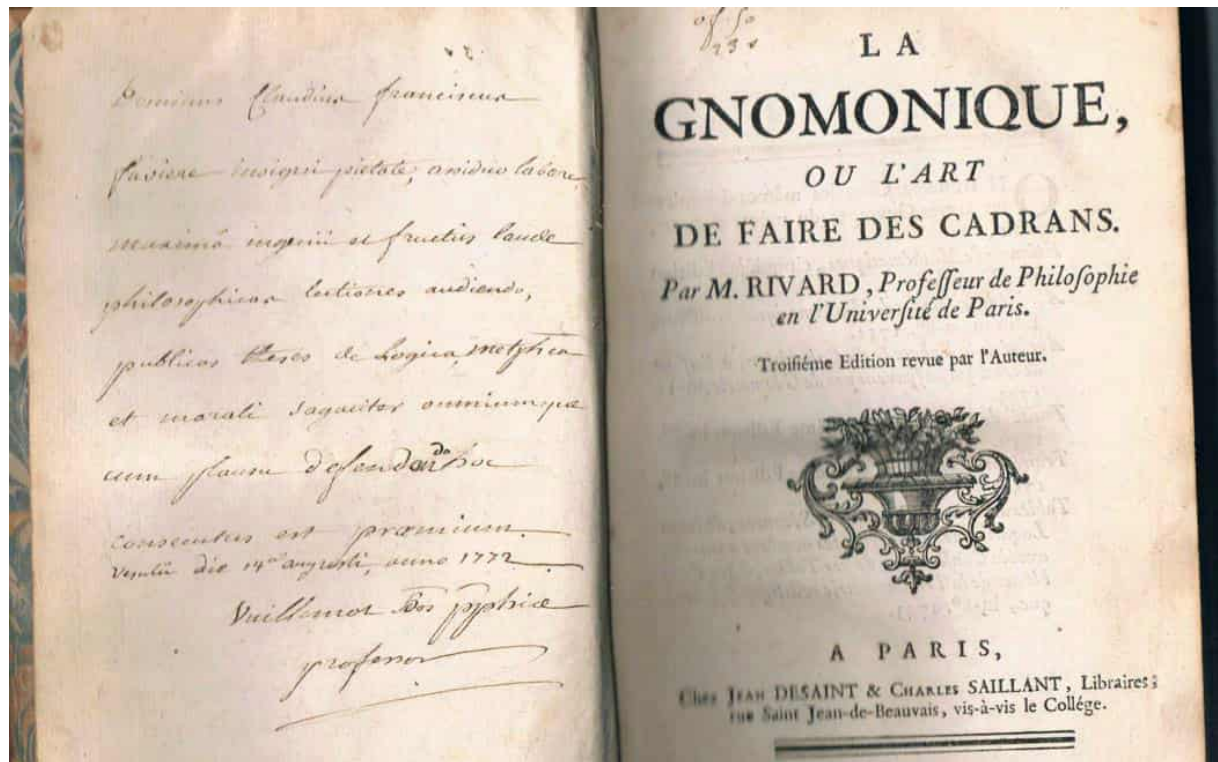 Dominus Claudius franciscus
faviere insigni pietate, assiduo labore
maximâ ingenii et fructus laude
philosophicas lectiones audiendo,
publicas theses de Logica, metphica
et morali sagaciter omniumque
cum plausu defendendo hoc
consecutus est præmium.
Vesulii die 14â augusti, anno 1772
Vuillemot pphiæ
professor
23
LA
GNOMONIQUE,
OU L'ART
DE FAIRE DES CADRANS.
Par M. RIVARD, Professeur de Philosophie
en l'Université de Paris.
Troisiéme Edition revue par l'Auteur.
A PARIS,
Chez JEAN DESAINT & CHARLES SAILLANT, Libraires;
rue Saint Jean-de-Beauvais, vis-à-vis le Collége.